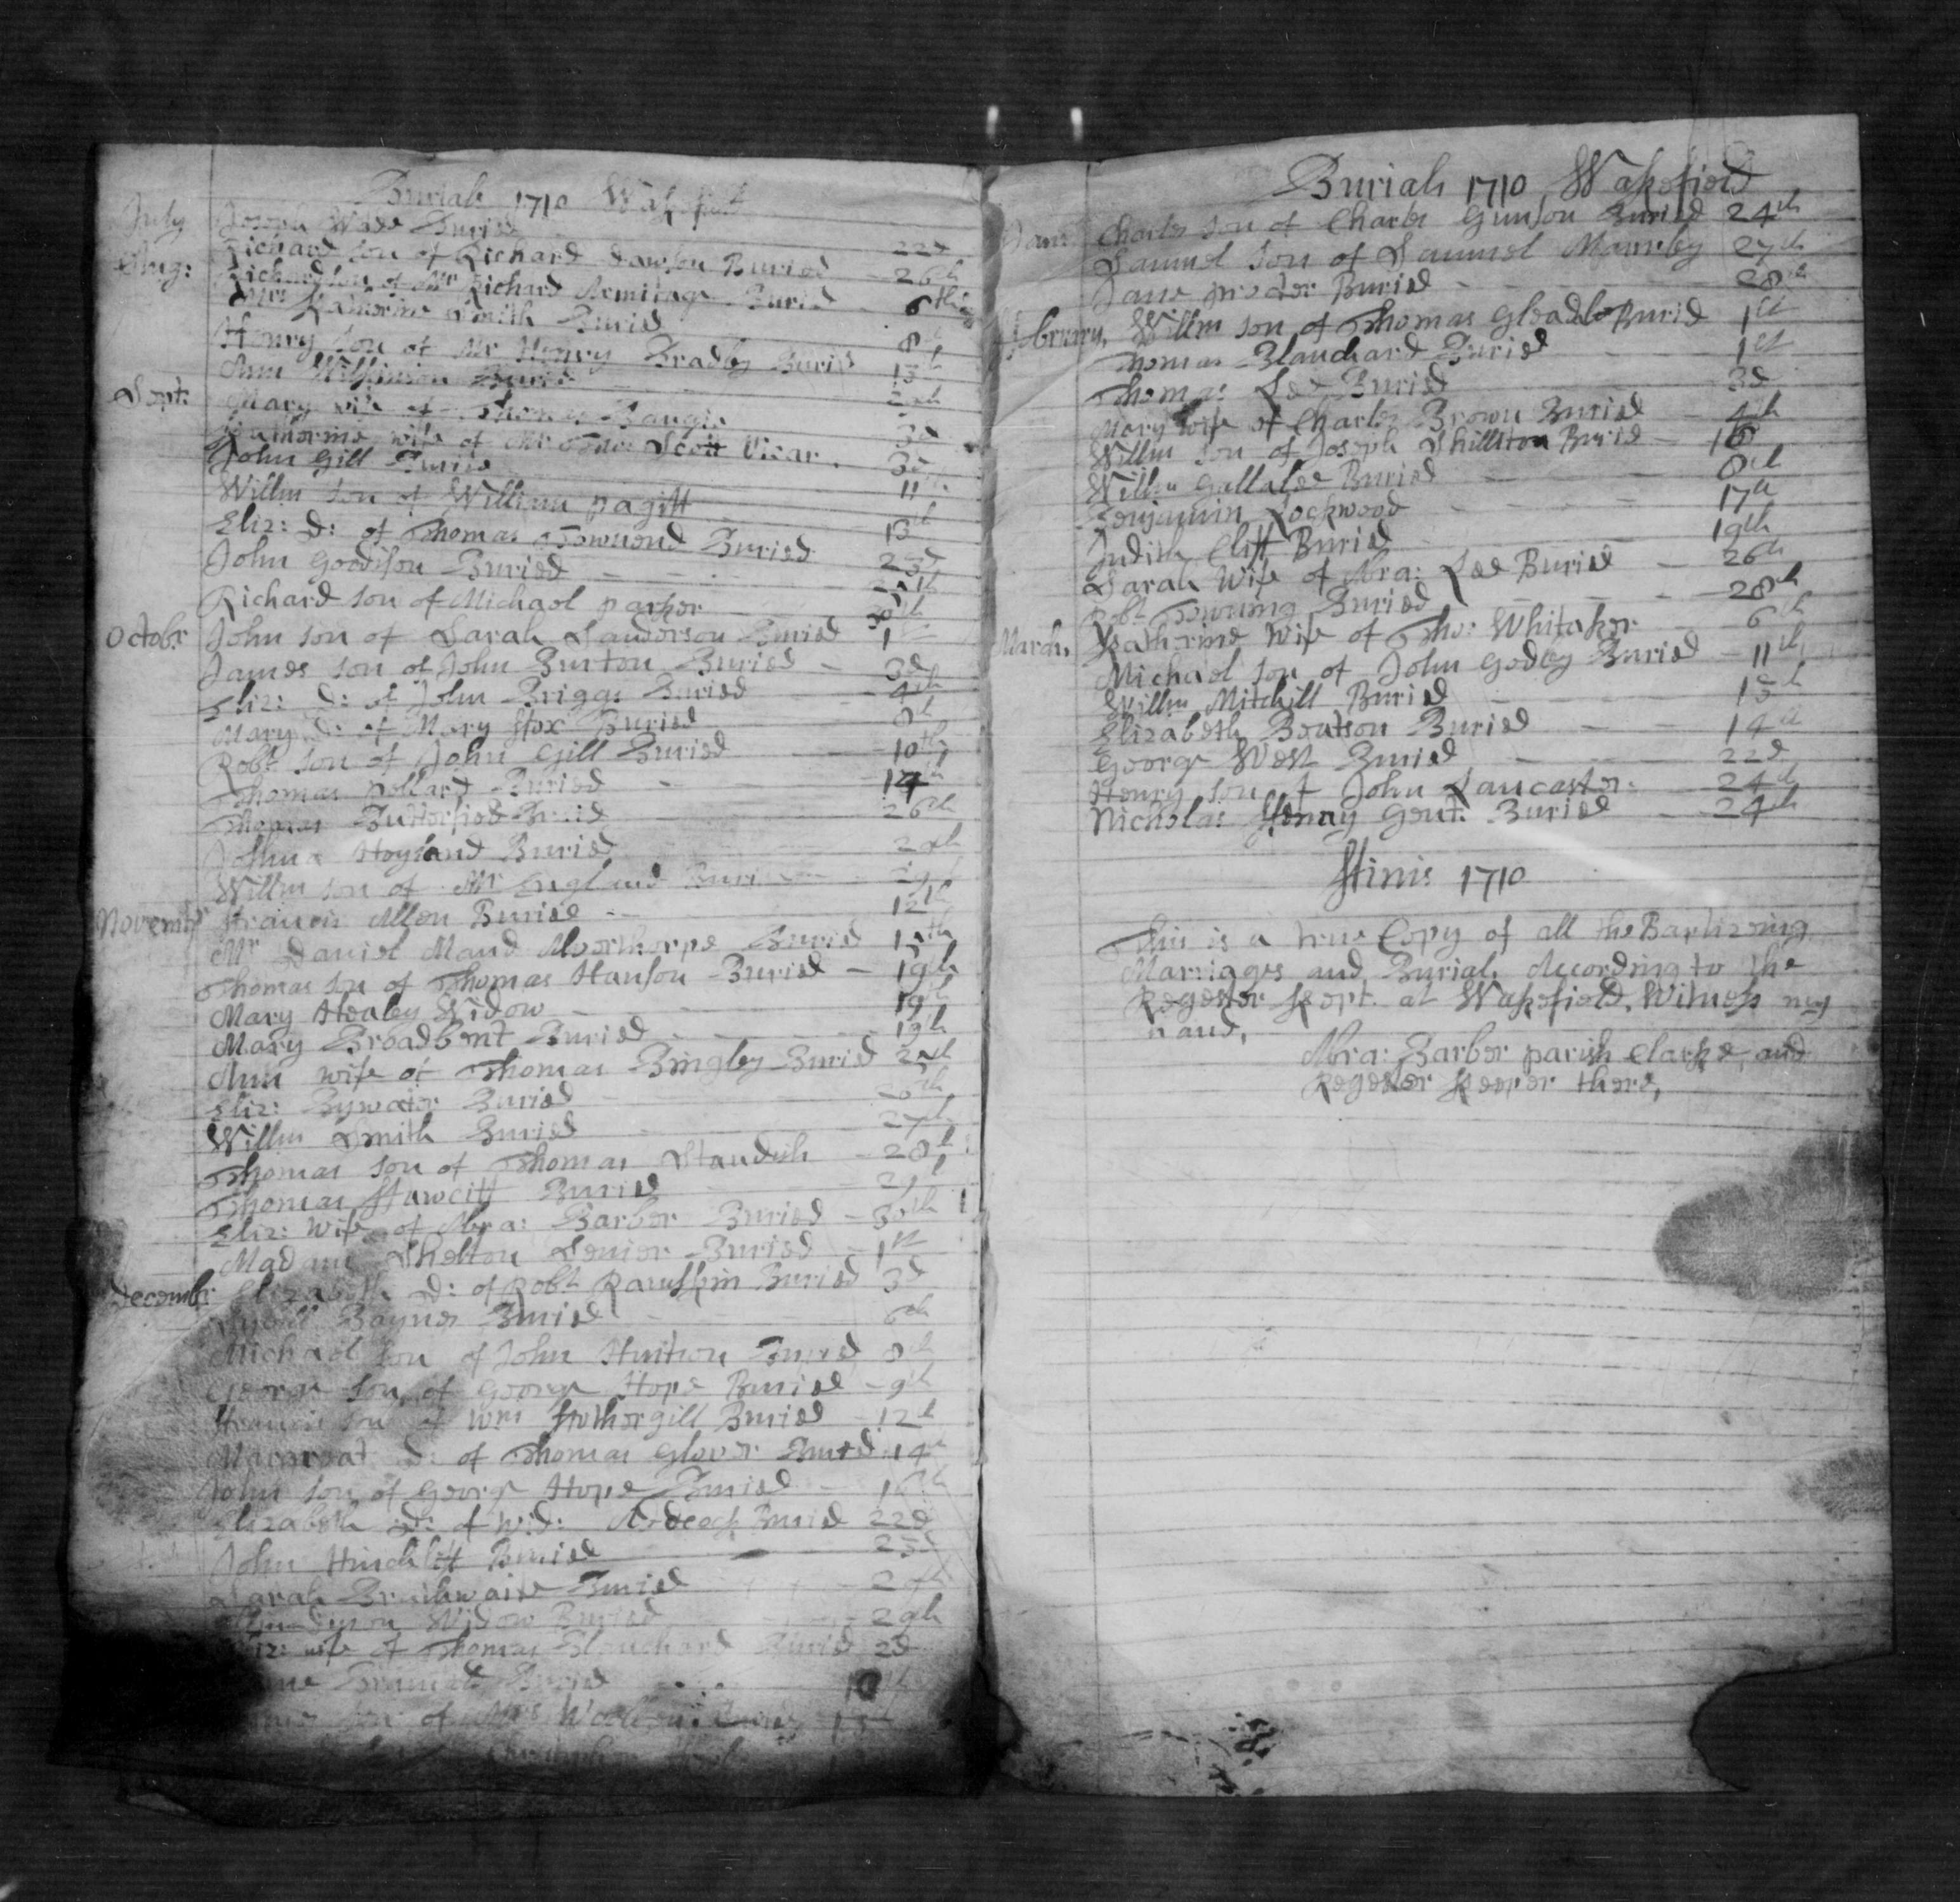 Burials 1710 Wakefield
July Joseph Wade Buried 22d
Richard son of Richard Dawson Buried 26th
Aug: Richard son of Mr Richard Armitage Buried 6th
Mrs Katherine Smith Buried 8th
Henry son of Mr Henry Bradley Buried 15th
Ann Wilkinson Buried
Sept: Mary wife of Thomas 3d
Katherine wife of Mr Scott Vicar. 3d
John Gill Buried 11
Willm son of William pagitt 13th
Eliz: D: of Thomas Townend Buried 23d
John Goodison Buried
Richard son of Michael parker 30th
Octobr John son of Sarah Sanderson Buried 1
James son of John Burton Buried 3d
Eliz: D: of John Briggs Buried 4th
Mary D: of Mary ffox Buried 8th
Robt son of John Gill Buried 10th
Thomas pollard Buried 14th
Thomas Butterfied Buried 26th
Joshua Hoyland Buried
Willm son of Mr England Buri
Novembr ffrancis Allen Buried 12th
Mr Daniel Maud Alverthorpe Buried
Thomas son of Thomas Hanson Buried 19th
Mary Healey Widow 19th
Mary Broadbent Buried 19th
Ann wife of Thomas Bingley Buried
Eliz: Bywater Buried
Willm Smith Buried 27th
Thomas son of Thomas Standish 28th
Thomas ffawcitt Buried
Eliz: Wife of Abra: Barber Buried 30th
Madam Shelton Senior Buried 1st
Decembr Elizabeth D: of Robt Rawshin Buried 3d
Baynes Buried 6th
Michael son of John Huitson Buried 8th
George son of George Hope Buried 9th
ffrancis son of Wm ffothergill Buried 12th
Margreat D: of Thomas Glover Buried 14th
John son of George Hope Buried
Elizabeth D: of Wid: Buried 22d
John Hinchliff Buried 23d
Sarah Braithwaite Buried
Widow Buried 29th
wife of Thomas Blanchard Buried 2d
Buried 10th
son of Mrs Buried 15th
Burials 1710 Wakefield
Janr: Charles son of Charles Gunson Buried 24th
Samuel son of Samuel Maureby 27th
Jane proctor Buried 28th
ffebruery, Willm son of Thomas Gleadle Buried 1st
Thomas Blanchard Buried 1st
Thomas Lee Buried 3d
Mary wife of Charles Brown Buried 4th
Willm son of Joseph Shillitoe Buried 16
Willm Gallalee Buried 8th
Benjamin Lockwood 17th
Judith Cliff Buried 19th
Sarah Wife of Abra: Lee Buried 26th
Robt Buried 28th
March, Katherine Wife of Tho: Whitaker 6th
Michael son of John Godley Buried 11th
Willm Mitchill Buried 15th
Elizabeth Beatson Buried 19th
George West Buried 22d
Henry son of John Lancaster 24th
Nicholas ffenay Gent: Buried 24th
ffinis 1710
This is a true Copy of all the Baptizeing
Marriages and Burials According to the
Regester kept at Wakefield, Witness my
hand,
Abra: Barber parish Clarke, and
Regester keeper there,